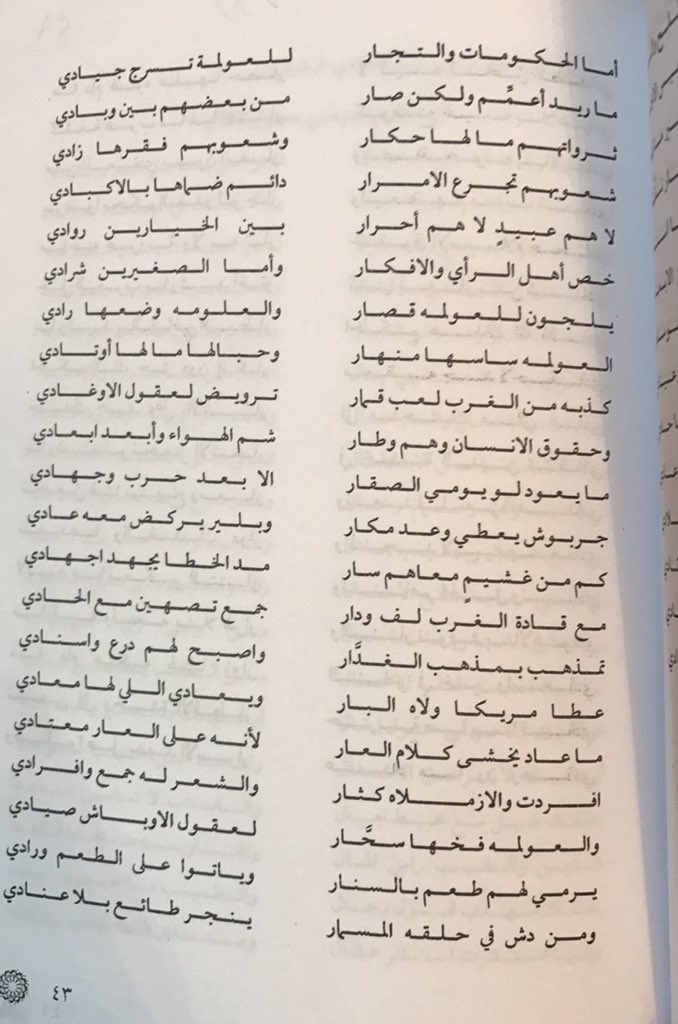 أما الحكومات والتجار للعولمة تسرج جيادي
ما ريد أعمِّم ولكن صار من بعضهم بين وبادي
ثرواتهم ما لها حكار وشعوبهم فقرها زادي
شعوبهم تجرع الامرار دائم ضماها بالاكبادي
لا هم عبيدٍ لا هم أحرار بين الخيارين روادي
خص أهل الرأي والافكار وأما الصغيرين شرادي
يلجون للعولمه قصار والعلومه وضعها رادي
العولمه ساسها منهار وحبالها ما لها أوتادي
كذبه من الغرب لعب قمار ترويض لعقول الاوغادي
وحقوق الانسان وهم وطار شم الهواء وأبعد ابعادي
ما يعود لو يومي الصقار الا بعد حرب وجهادي
جربوش يعطي وعد مكار وبلير يركض معه عادي
كم من غشيمٍ معاهم سار مد الخطا يجهد اجهادي
مع قادة الغرب لف ودار جمع تصهين مع الحادي
تمذهب بمذهب الغدَّار واصبح لهم درع واسنادي
عطا مريكا ولاه البار ويعادي اللي لها معادي
ما عاد يخشى كلام العار لأنه على العار معتادي
افردت والازملاه كثار والشعر له جمع وافرادي
والعولمه فخها سحَّار لعقول الاوباش صيادي
يرمي لهم طعم بالسنار وياتوا على الطعم ورادي
ومن دش في حلقه المسمار ينجر طائع بلا عنادي
٤٣